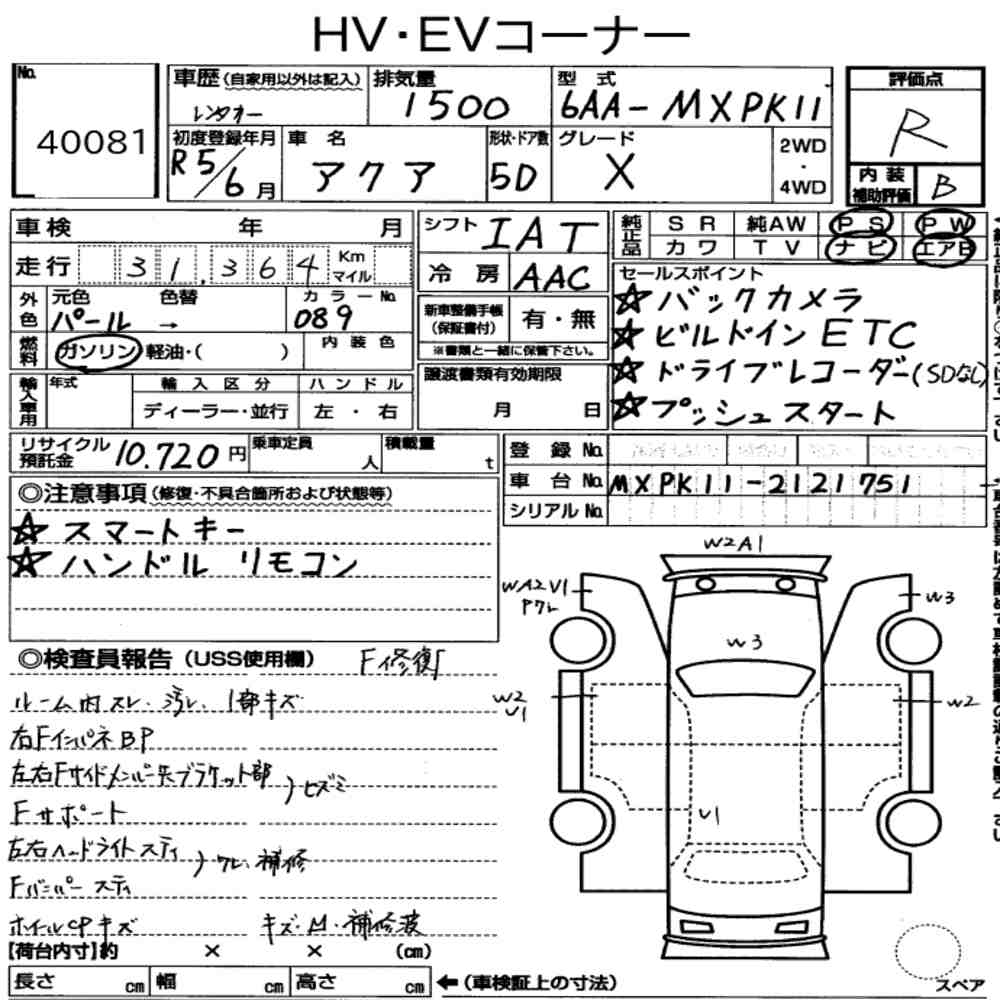 HV・EVコーナー
No.
40081
車歴(自家用以外は記入)
レンタカー
排気量
1500
型式
6AA-MXPK11
評価点
R
初度登録年月
R5/6月
車名
アクア
形状・ドア数
5D
グレード
X
2WD
・
4WD
内装
補助評価
B
車検 年 月
走行 31,364 Km マイル
外色 元色 色替 カラーNo.
パール → 089
燃料 ガソリン 軽油・( )
内装色
輸入車用 年式 輸入区分 ハンドル
ディーラー・並行 左・右
シフト IAT
冷房 AAC
新車整備手帳
(保証書付)
有・無
※書類と一緒に保管下さい。
譲渡書類有効期限
月 日
純正品 SR 純AW PS PW
カワ TV ナビ エアB
セールスポイント
☆バックカメラ
☆ビルドインETC
☆ドライブレコーダー(SDなし)
☆プッシュスタート
リサイクル
預託金
10.720円
乗車定員
人
積載量
t
登録No.
車台No. MXPK11-2121751
シリアルNo.
◎注意事項(修復・不具合箇所および状態等)
☆スマートキー
☆ハンドルリモコン
◎検査員報告(USS使用欄) F修復
ルーム内スレ、汚レ、1部キズ
右FインパネBP
左右Fサイドメンバー先ブラケット部
Fサポート
)ヒズミ
左右ヘッドライトステイ
Fバンパーステイ
)ワレ、補修
ホイールCPキズ キズ・M・補修波
W2A1
WA2V1
Pワレ
W3
W3
W2
U1
W2
U1
【荷台内寸】約 × × (cm)
長さ cm 幅 cm 高さ cm
←(車検証上の寸法)
スペア